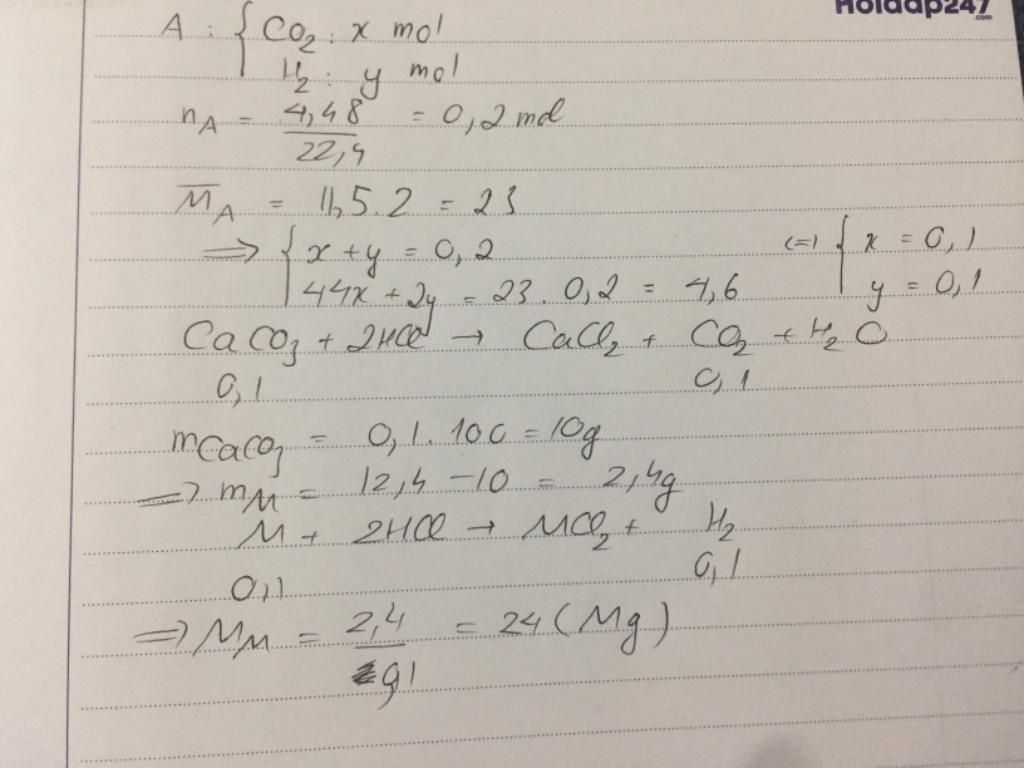 Hoidap247
.com
A : { CO₂ : x mol
H₂ : y mol
nA = 4,48 / 22,4 = 0,2 mol
M̅A = 11,5.2 = 23
=> { x + y = 0,2 (=) { x = 0,1
44x + 2y = 23 . 0,2 = 4,6 y = 0,1
CaCO₃ + 2HCl → CaCl₂ + CO₂ + H₂O
0,1 0,1
mCaCO₃ = 0,1.100 = 10g
=> mM = 12,4 - 10 = 2,4g
M + 2HCl → MCl₂ + H₂
0,1 0,1
=> MM = 2,4 / 0,1 = 24 (Mg)